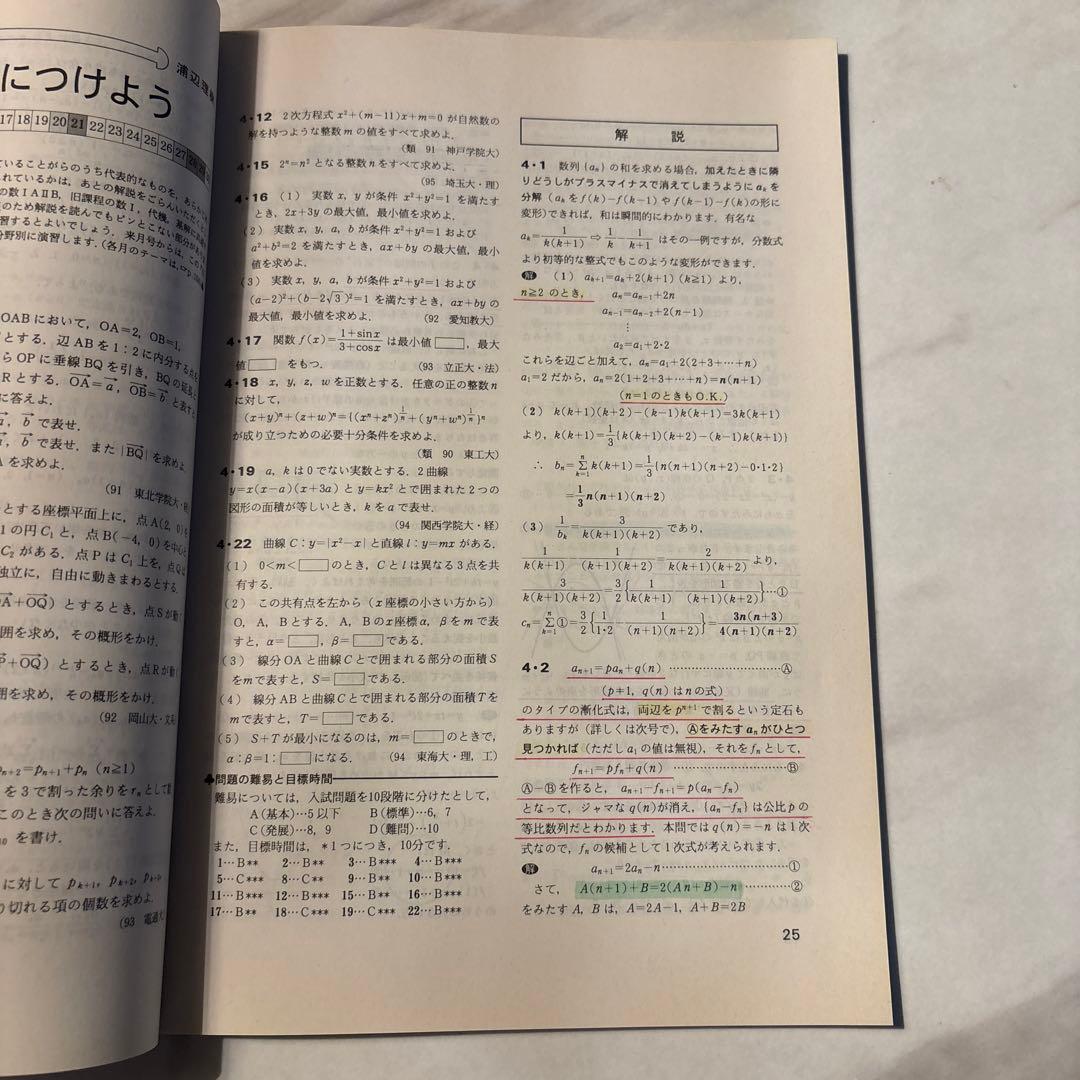 につけよう
浦辺理
17 18 19 20 21 22 23 24 25 26 27
いることがらのうち代表的なものを，
れているかは，あとの解説をごらんいただく
の数ⅠAⅡB，旧課程の数Ⅰ，代幾，基解
ため解説を読んでもピンとこない部分が
習するとよいでしょう．来月号からは，
野別に演習します.(各月のテーマは，
OABにおいて，OA=2，OB=1，
とする．辺ABを1：2に内分する点を
らOPに垂線BQを引き，BQの延長
Rとする．OA→=a→，OB→=b→と表す
に答えよ．
a→，b→で表せ．
a→，b→で表せ．また|BQ→|を求めよ
を求めよ．
(91 東北学院大・
とする座標平面上に，点A(2, 0)
1の円C₁と，点B(-4, 0)を中心
C₂がある．点PはC₁上を，点Q
独立に，自由に動きまわるとする．
OA→+OQ→)とするとき，点Sが動
囲を求め，その概形をかけ．
OP→+OQ→)とするとき，点Rが動
囲を求め，その概形をかけ．
(92 岡山大・文
pₙ₊₂=pₙ₊₁+pₙ (n≧1)
を3で割った余りをrₙとして
このとき次の問いに答えよ．
を書け．
に対してpₖ₊₁，pₖ₊₂，
り切れる項の個数を求めよ．
(93 電通大
4・12 2次方程式x²+(m-11)x+m=0が自然数の
解を持つような整数mの値をすべて求めよ．
(類 91 神戸学院大)
4・15 2ⁿ=n²となる整数nをすべて求めよ．
(95 埼玉大・理)
4・16 (1) 実数x, yが条件x²+y²=1を満たす
とき，2x+3yの最大値，最小値を求めよ．
(2) 実数x, y, a, bが条件x²+y²=1および
a²+b²=2を満たすとき，ax+byの最大値，最小
値を求めよ．
(3) 実数x, y, a, bが条件x²+y²=1および
(a-2)²+(b-2√3)²=1を満たすとき，ax+byの
最大値，最小値を求めよ． (92 愛知教大)
4・17 関数f(x)=(1+sinx)/(3+cosx)は最小値□，最大
値□ をもつ． (93 立正大・法)
4・18 x, y, z, wを正数とする．任意の正の整数n
に対して，
(x+y)ⁿ+(z+w)ⁿ={(xⁿ+zⁿ)^(1/n)+(yⁿ+wⁿ)^(1/n)}ⁿ
が成り立つための必要十分条件を求めよ．
(類 90 東工大)
4・19 a, kは0でない実数とする．2曲線
y=x(x-a)(x+3a)とy=kx²とで囲まれた2つの
図形の面積が等しいとき，kをaで表せ．
(94 関西学院大・経)
4・22 曲線C：y=|x²-x|と直線l：y=mxがある．
(1) 0<m<□のとき，Cとlは異なる3点を共
有する．
(2) この共有点を左から(x座標の小さい方から)
O，A，Bとする．A，Bのx座標α，βをmで表
すと，α=□，β=□である．
(3) 線分OAと曲線Cとで囲まれる部分の面積S
をmで表すと，S=□である．
(4) 線分ABと曲線Cとで囲まれる部分の面積Tを
mで表すと，T=□である．
(5) S+Tが最小になるのは，m=□のときで，
α：β=1：□になる． (94 東海大・理，工)
♣問題の難易と目標時間
難易については，入試問題を10段階に分けたとして，
A(基本)…5以下 B(標準)…6，7
C(発展)…8，9 D(難問)…10
また，目標時間は，*1つにつき，10分です．
1…B** 2…B** 3…B** 4…B***
5…C** 8…C** 9…B** 10…B***
11…B*** 12…B*** 15…B** 16…B***
17…B** 18…C*** 19…C*** 22…B***
解 説
4・1 数列{aₙ}の和を求める場合，加えたときに隣
りどうしがプラスマイナスで消えてしまうようにaₖを
分解(aₖをf(k)-f(k-1)やf(k-1)-f(k)の形に
変形)できれば，和は瞬間的にわかります．有名な
aₖ=1/(k(k+1))⇒1/k-1/(k+1)はその一例ですが，分数式
より初等的な整式でもこのような変形ができます．
解 (1) aₖ₊₁=aₖ+2(k+1) (k≧1)より，
n≧2のとき， aₙ=aₙ₋₁+2n
aₙ₋₁=aₙ₋₂+2(n-1)
⋮
a₂=a₁+2・2
これらを辺ごと加えて，aₙ=a₁+2(2+3+…+n)
a₁=2だから，aₙ=2(1+2+3+…+n)=n(n+1)
(n=1のときもO.K.)
(2) k(k+1)(k+2)-(k-1)k(k+1)=3k(k+1)
より，k(k+1)=1/3{k(k+1)(k+2)-(k-1)k(k+1)}
∴ bₙ=Σ[k=1→n]k(k+1)=1/3{n(n+1)(n+2)-0・1・2}
=1/3n(n+1)(n+2)
(3) 1/bₖ=3/(k(k+1)(k+2))であり，
1/(k(k+1))-1/((k+1)(k+2))=2/(k(k+1)(k+2))より，
3/(k(k+1)(k+2))=3/2{1/(k(k+1))-1/((k+1)(k+2))}…①
cₙ=Σ[k=1→n]①=3/2{1/(1・2)-1/((n+1)(n+2))}=3n(n+3)/(4(n+1)(n+2))
4・2 aₙ₊₁=paₙ+q(n) ……………Ⓐ
(p≠1，q(n)はnの式)
のタイプの漸化式は，両辺をpⁿ⁺¹で割るという定石も
ありますが(詳しくは次号で)，Ⓐをみたすaₙがひとつ
見つかれば(ただしa₁の値は無視)，それをfₙとして，
fₙ₊₁=pfₙ+q(n) ……………Ⓑ
Ⓐ-Ⓑを作ると，aₙ₊₁-fₙ₊₁=p(aₙ-fₙ)
となって，ジャマなq(n)が消え，{aₙ-fₙ}は公比pの
等比数列だとわかります．本問ではq(n)=-nは1次
式なので，fₙの候補として1次式が考えられます．
解 aₙ₊₁=2aₙ-n ……………①
さて， A(n+1)+B=2(An+B)-n ……………②
をみたすA，Bは，A=2A-1，A+B=2B
25